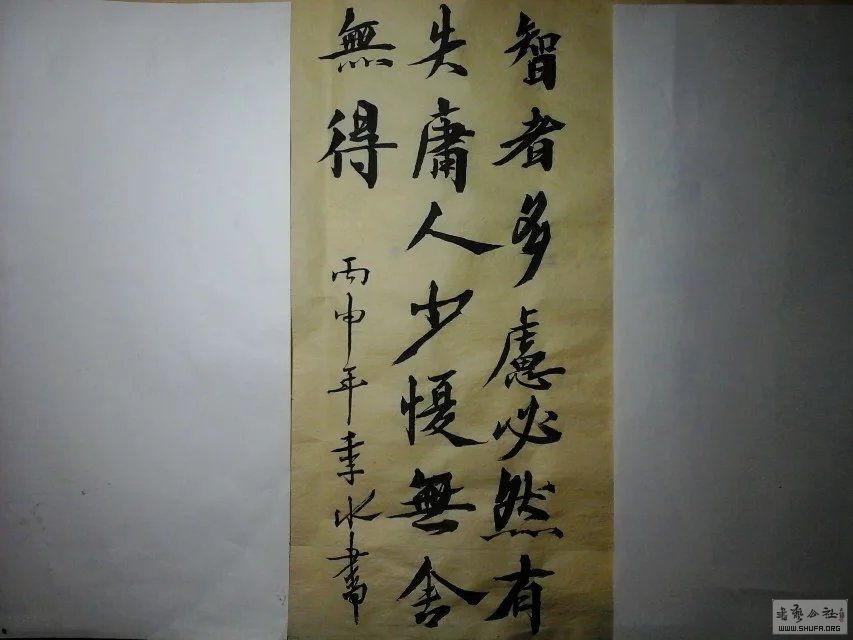 智者多慮必然有
失庸人少懮無舍
無得
丙申年李水書
書藝公社
WWW.SHUFA.ORG